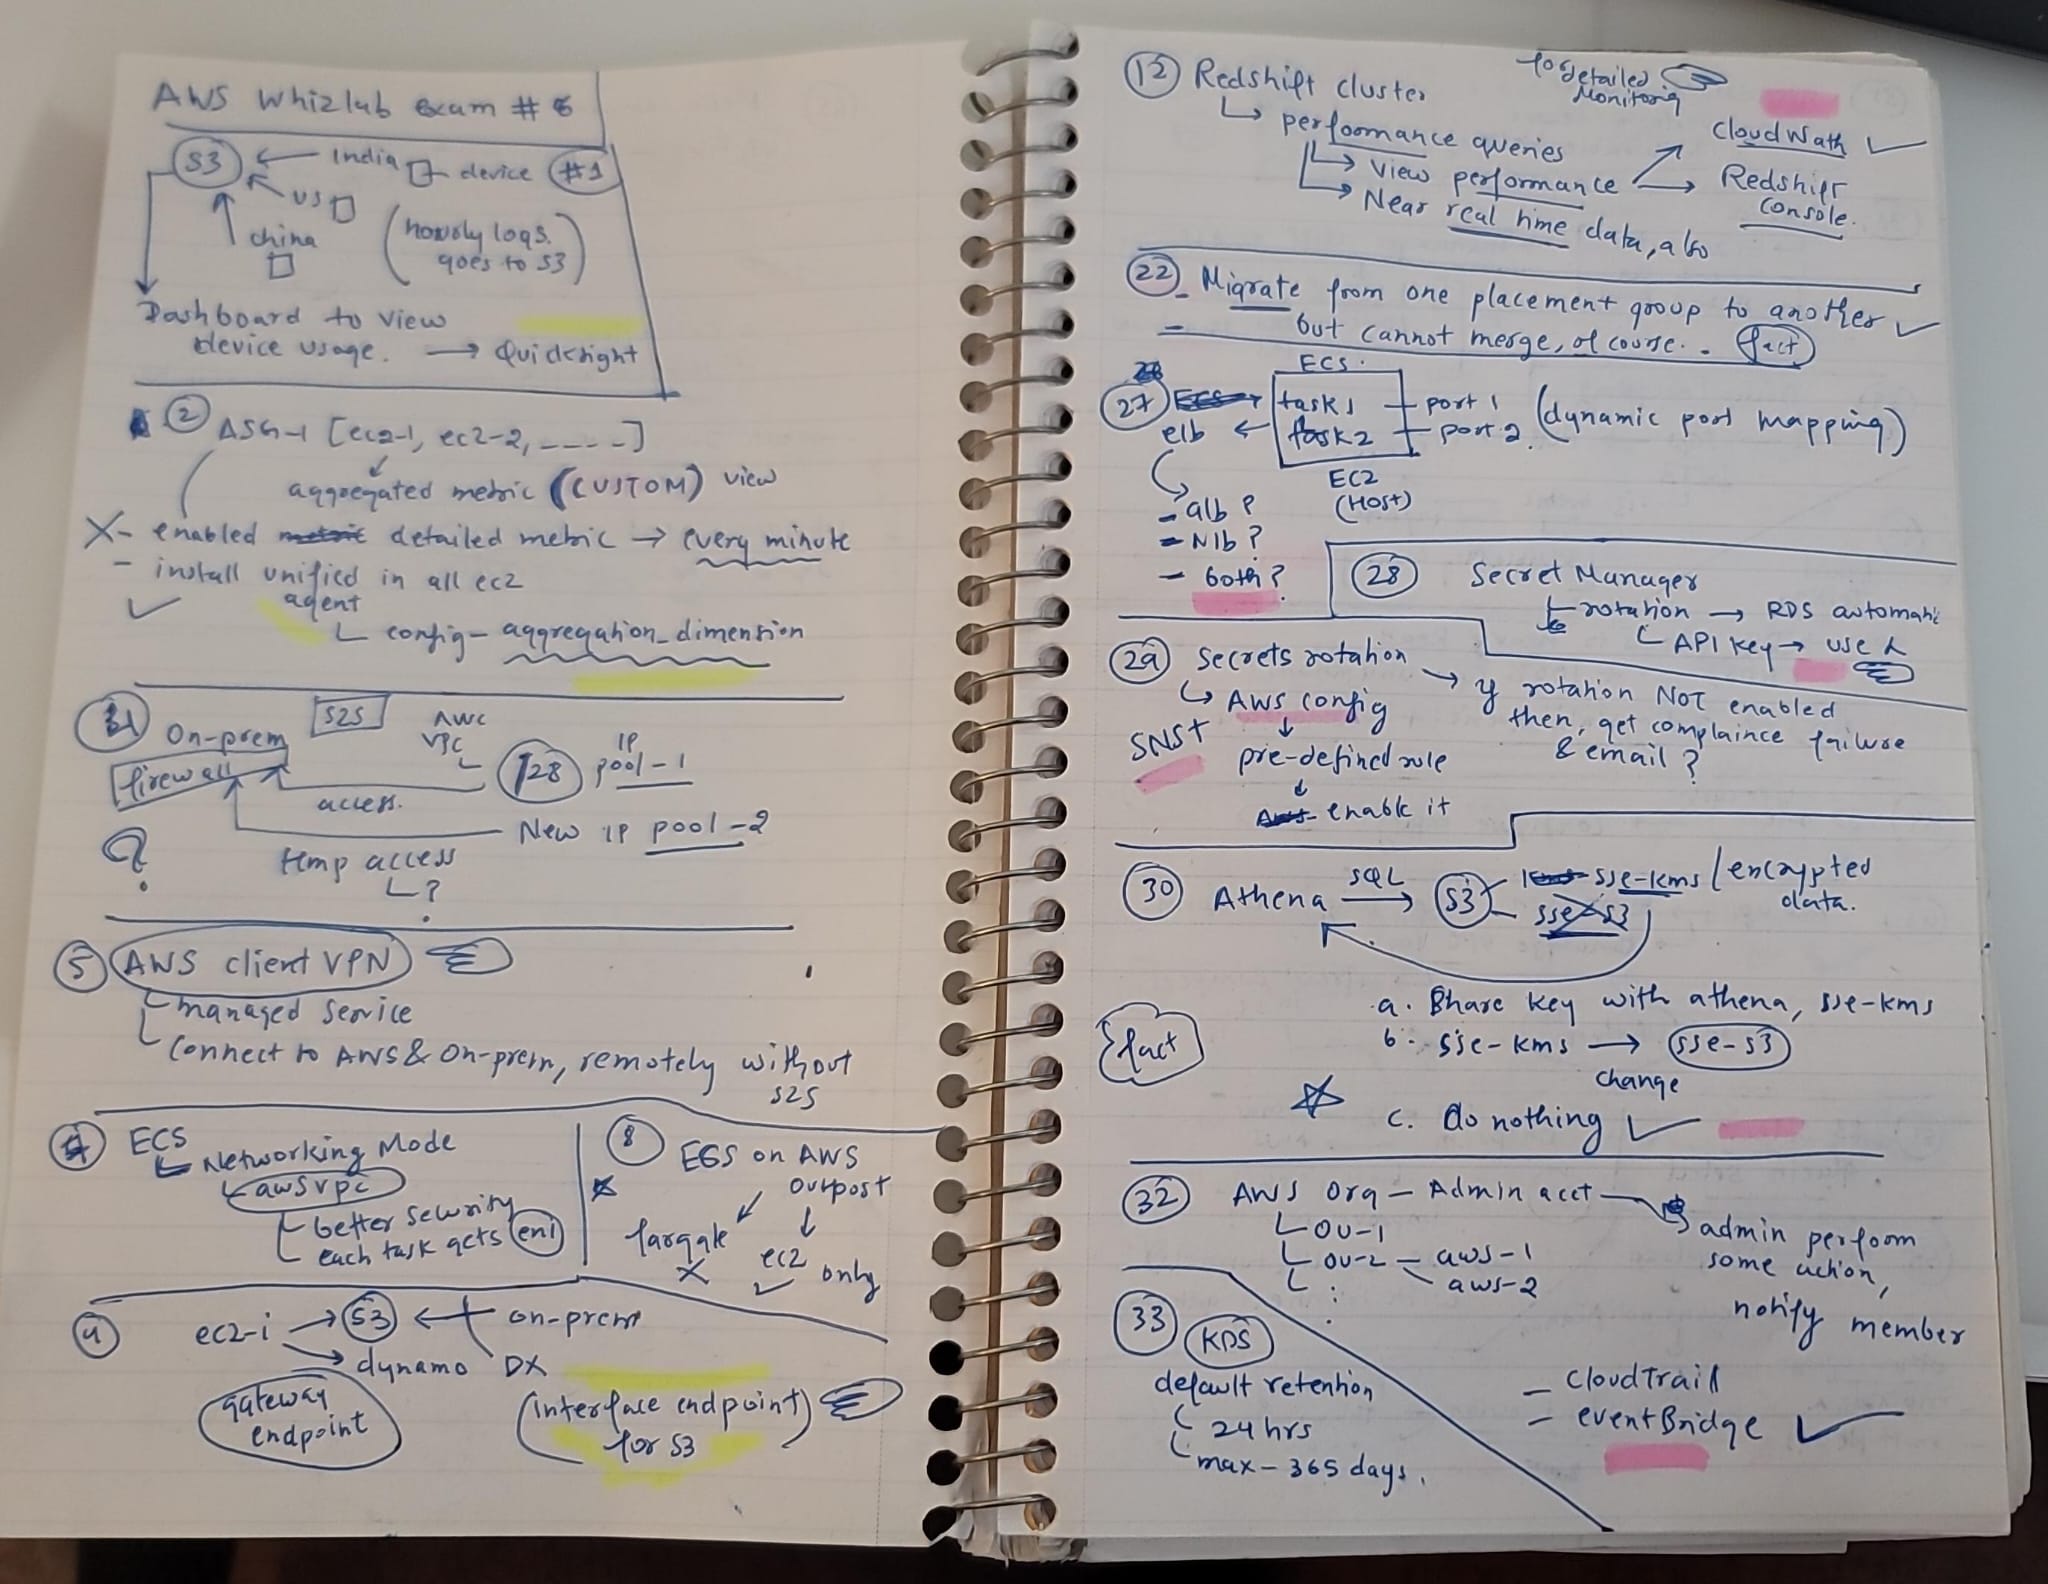 AWS Whizlab exam # 6
S3 ← India device #1
US
china
(hourly logs.
goes to S3)
Dashboard to view
device usage. → Quicksight
2 ASG-1 [ec2-1, ec2-2, ----]
aggregated metric (CUSTOM) view
X- enabled detailed metric → every minute
- install unified in all ec2
agent
config - aggregation_dimension
On-prem S2S
firewall
VPC
128 IP
pool-1
access.
New IP pool-2
?
temp access
?
5 AWS client VPN
managed service
Connect to AWS & On-prem, remotely without
S2S
ECS
Networking Mode
awsvpc
better security
each task gets eni
8 ECS on AWS
outpost
fargate ec2
X only
9 ec2-i → S3 ← on-prem
→ dynamo DX
gateway
endpoint
(interface endpoint)
for S3
12 Redshift cluster
for detailed
Monitorig
performance queries
View performance
Near real time data, also
CloudWath
Redshift
console.
22 - Migrate from one placement group to another
- but cannot merge, of course. . fact
27 ECS.
task1 port 1 (dynamic port mapping)
elb ← task2 port 2
EC2
(Host)
- alb ?
- Nlb ?
- both ?
28 Secret Manager
rotation → RDS automatic
API key → use λ
29 Secrets rotation → if rotation NOT enabled
then, get complaince failure
& email ?
AWS config
SNS+
pre-defined rule
enable it
30 Athena SQL → S3 sse-kms / encrypted
data.
sse-s3
fact
a. Share key with athena, sse-kms
b. sse-kms → sse-s3
change
c. do nothing
32 AWS Org - Admin acct
OU-1
OU-2 - aws-1
aws-2
admin perfoom
some action,
notify member
- cloudTrail
- eventBridge
33 KDS
default retention
24 hrs
max - 365 days.